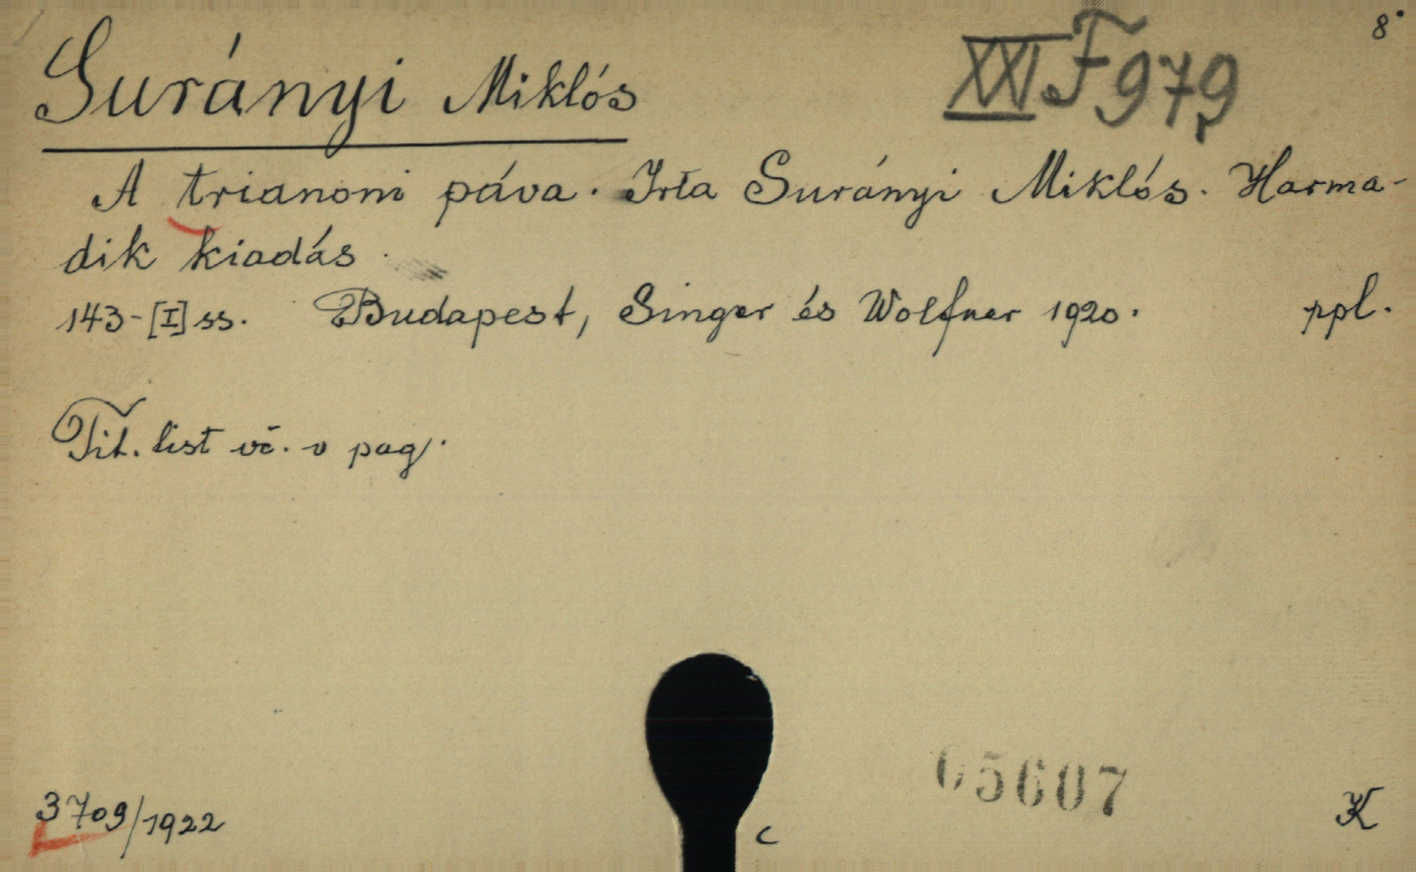 8°
Surányi Miklós
XXI F 979
A trianoni páva. Irta Surányi Miklós. Harma-
dik kiadás.
143-[I] ss. Budapest, Singer és Wolfner 1920. ppl.
Tit. list vč. v pag.
05607
3709/1922
c
K